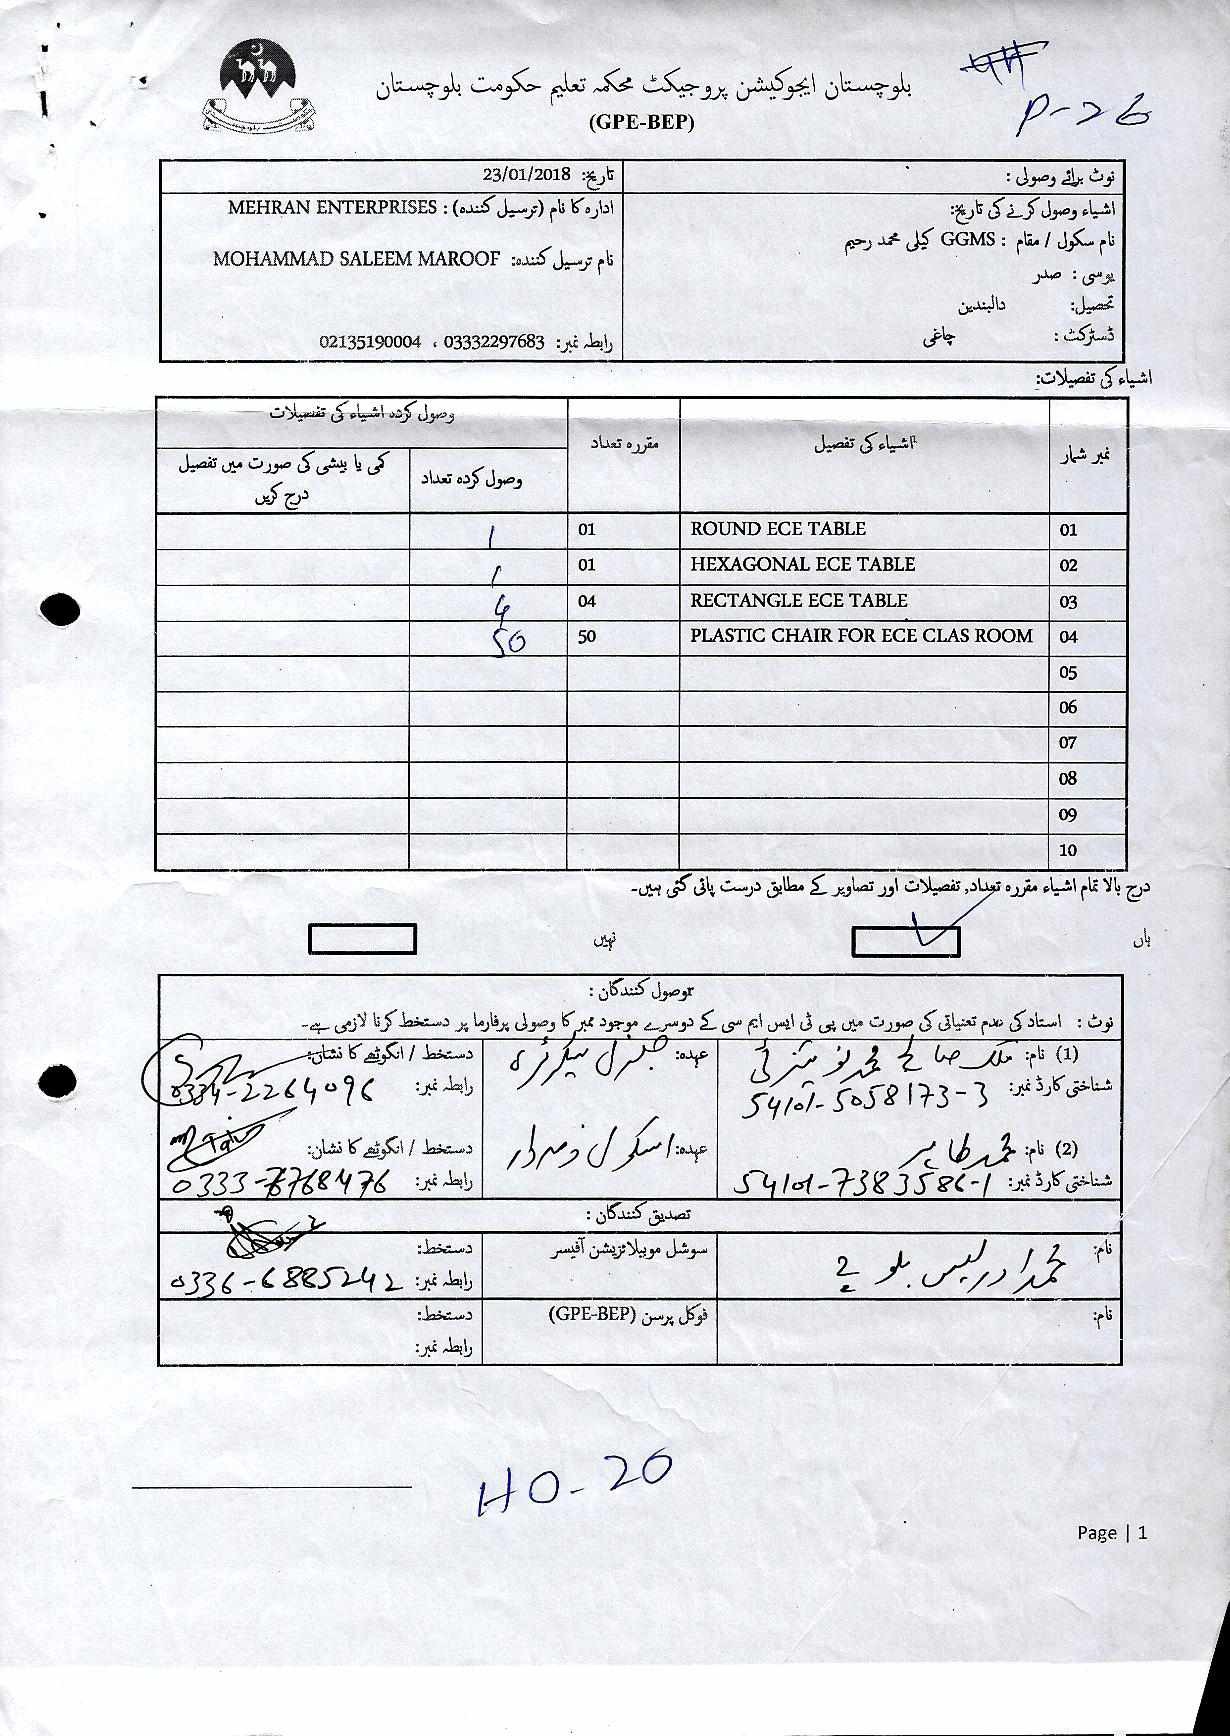 بلوچستان ایجوکیشن پروجیکٹ محکمہ تعلیم حکومت بلوچستان
(GPE-BEP)
P-26
نوٹ برائے وصولی :
اشیاء وصول کرنے کی تاریخ:
نام سکول / مقام : GGMS کیلی محمد رحیم
یوسی : صدر
تحصیل: دالبندین
ڈسٹرکٹ : چاغی
تاریخ: 23/01/2018
ادارہ کا نام (ترسیل کنندہ) : MEHRAN ENTERPRISES
نام ترسیل کنندہ: MOHAMMAD SALEEM MAROOF
رابطہ نمبر: 03332297683 ، 02135190004
اشیاء کی تفصیلات:
نمبر شمار اشیاء کی تفصیل مقررہ تعداد وصول کردہ اشیاء کی تفصیلات
وصول کردہ تعداد کمی یا بیشی کی صورت میں تفصیل درج کریں
01 ROUND ECE TABLE 01 1
02 HEXAGONAL ECE TABLE 01 1
03 RECTANGLE ECE TABLE 04 4
04 PLASTIC CHAIR FOR ECE CLAS ROOM 50 50
05
06
07
08
09
10
درج بالا تمام اشیاء مقررہ تعداد, تفصیلات اور تصاویر کے مطابق درست پائی گئی ہیں۔
ہاں نہیں
وصول کنندگان :
نوٹ : استاد کی عدم تعنیاتی کی صورت میں پی ٹی ایس ایم سی کے دوسرے موجود ممبر کا وصولی پرفارما پر دستخط کرنا لازمی ہے۔
(1) نام: ملک صالح محمد عہدہ: جنرل سیکرٹری دستخط / انگوٹھے کا نشان:
شناختی کارڈ نمبر: 54101-5058173-3 رابطہ نمبر: 0334-2264096
(2) نام: محمد طاہر عہدہ: اسکول ذمہ دار دستخط / انگوٹھے کا نشان:
شناختی کارڈ نمبر: 54101-7383586-1 رابطہ نمبر: 0333-7768476
تصدیق کنندگان :
نام: محمد ادریس بلوچ سوشل موبیلائزیشن آفیسر دستخط:
رابطہ نمبر: 0336-6885242
نام: فوکل پرسن (GPE-BEP) دستخط:
رابطہ نمبر:
HO-20
Page | 1